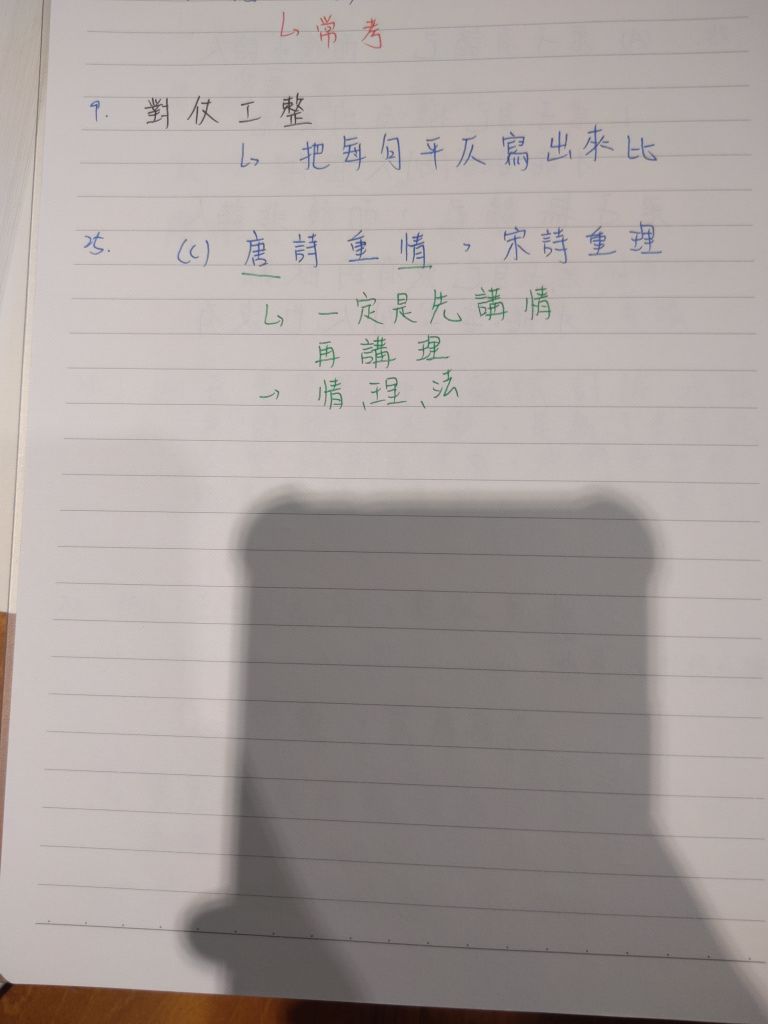 ↳ 常考
9. 對仗工整
↳ 把每句平仄寫出來比
25. (C) 唐詩重情，宋詩重理
↳ 一定是先講情
再講理
→ 情、理、法